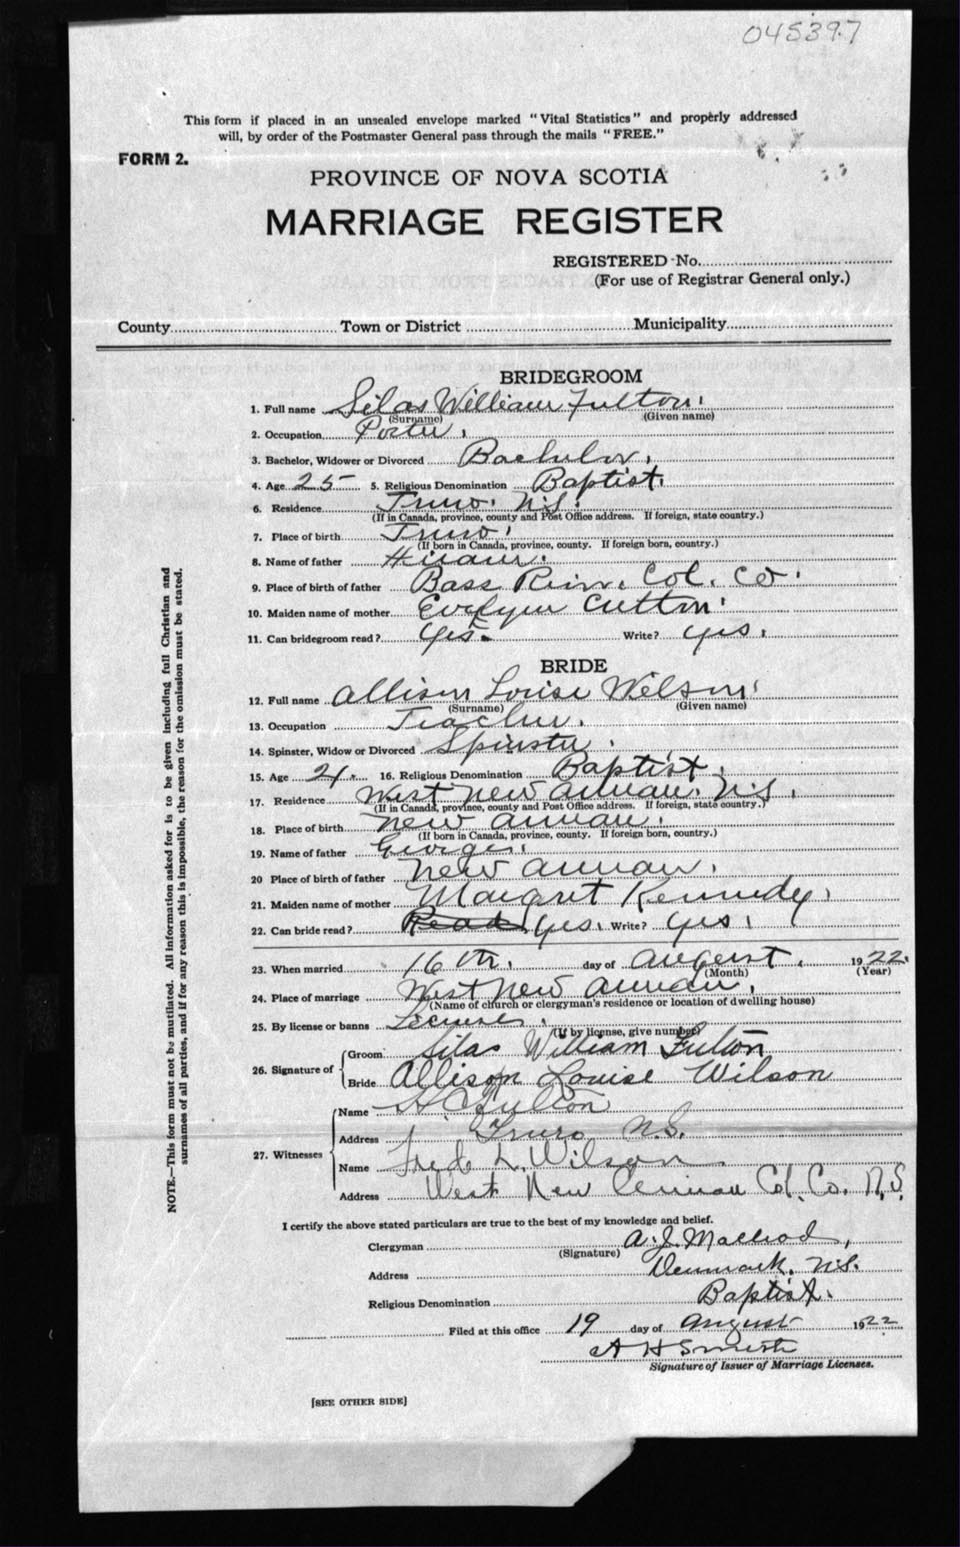 045397
This form if placed in an unsealed envelope marked "Vital Statistics" and properly addressed
will, by order of the Postmaster General pass through the mails "FREE."
FORM 2.
PROVINCE OF NOVA SCOTIA
MARRIAGE REGISTER
REGISTERED No.
(For use of Registrar General only.)
County Town or District Municipality
BRIDEGROOM
1. Full name Silas William Fulton
(Surname) (Given name)
2. Occupation Porter
3. Bachelor, Widower or Divorced Bachelor.
4. Age 25 5. Religious Denomination Baptist.
6. Residence Truro. N.S.
(If in Canada, province, county and Post Office address. If foreign, state country.)
7. Place of birth Truro
(If born in Canada, province, county. If foreign born, country.)
8. Name of father Hiram.
9. Place of birth of father Bass River. Col. Co.
10. Maiden name of mother Evelyn Cutten
11. Can bridegroom read? Yes. Write? yes.
BRIDE
12. Full name Allison Louise Wilson
(Surname) (Given name)
13. Occupation Teacher.
14. Spinster, Widow or Divorced Spinster.
15. Age 16. Religious Denomination Baptist.
17. Residence West New Annan. N.S.
(If in Canada, province, county and Post Office address. If foreign, state country.)
18. Place of birth New Annan.
(If born in Canada, province, county. If foreign born, country.)
19. Name of father George.
20 Place of birth of father New Annan.
21. Maiden name of mother Margret Kennedy.
22. Can bride read? Read Yes. Write? Yes.
23. When married 16th. day of August. 1922.
(Month) (Year)
24. Place of marriage West New Annan.
(Name of church or clergyman's residence or location of dwelling house)
25. By license or banns License.
(If by license, give number)
26. Signature of Groom Silas William Fulton
Bride Allison Louise Wilson
27. Witnesses Name H C Fulton
Address Truro N.S.
Name Fred L. Wilson
Address West New Annan Col. Co. N.S.
I certify the above stated particulars are true to the best of my knowledge and belief.
Clergyman A. J. MacLeod,
(Signature)
Address Denmark, N.S.
Religious Denomination Baptist.
Filed at this office 19 day of August 1922
A H Smith
Signature of Issuer of Marriage Licenses.
[SEE OTHER SIDE]
NOTE.—This form must not be mutilated. All information asked for is to be given including full Christian and
surnames of all parties, and if for any reason this is impossible, the reason for the omission must be stated.